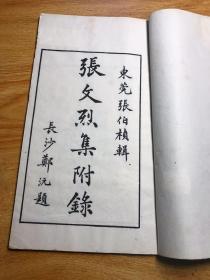 東莞張伯楨輯
張文烈集附錄
長沙鄭沅題